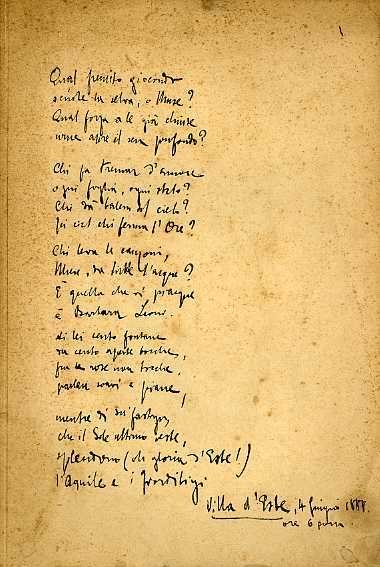 Qual fremito giocondo
scuote la selva, o Muse?
Qual forza a le già chiuse
urne apre il sen profondo?
Chi fa tremar d'amore
ogni foglia, ogni stelo?
Chi dà baleni al cielo?
In ciel chi ferma l'Ore?
Chi leva le canzoni,
Muse, da tutte l'acque?
È quella che vi piacque
è Barbara Leoni.
Di lei cento fontane
da cento aperte bocche,
fra le rose non tocche,
parlan soavi e piane,
mentre di su' fastigi,
che il Sole ultimo veste,
splendono (oh gloria d'Este!)
l'Aquile e i Fiordiligi
Villa d'Este, 4 Giugno 1888.
ore 6 pom.